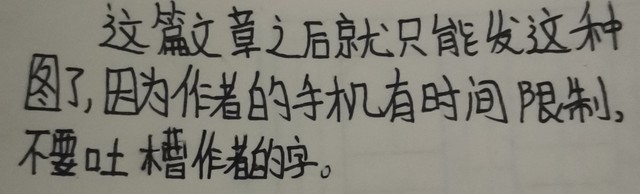 这篇文章之后就只能发这种
图了,因为作者的手机有时间限制,
不要吐槽作者的字。